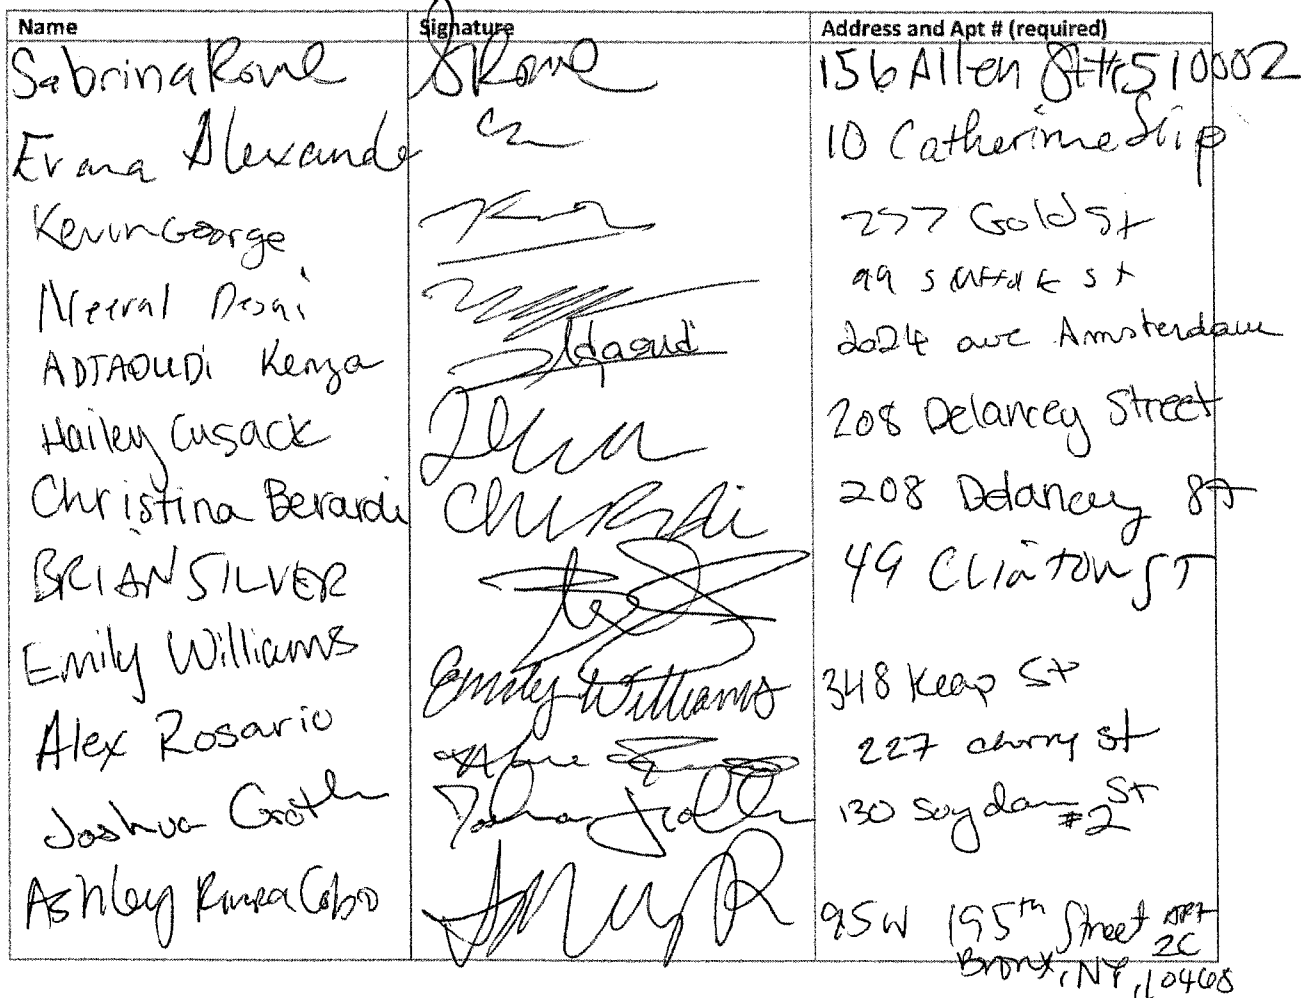 Name Signature Address and Apt # (required)
Sabrina Rowe SRowe 156 Allen St #5 10002
Evana Alexander 10 Catherine Slip
Kevin George 277 Gold St
Neeral Desai 99 Suffolk St
ADJAOUDi Kenza Adjaoudi 2024 ave Amsterdam
Hailey Cusack 208 Delancey Street
Christina Berardi 208 Delancey St
BRIAN SILVER 49 Clinton ST
Emily Williams Emily Williams 348 Keap St
Alex Rosario 227 cherry st
Joshua Groth 130 Suydam St #2
Ashley Rivera Cobo 95 W 195th Street APT 2C
Bronx, NY, 10468